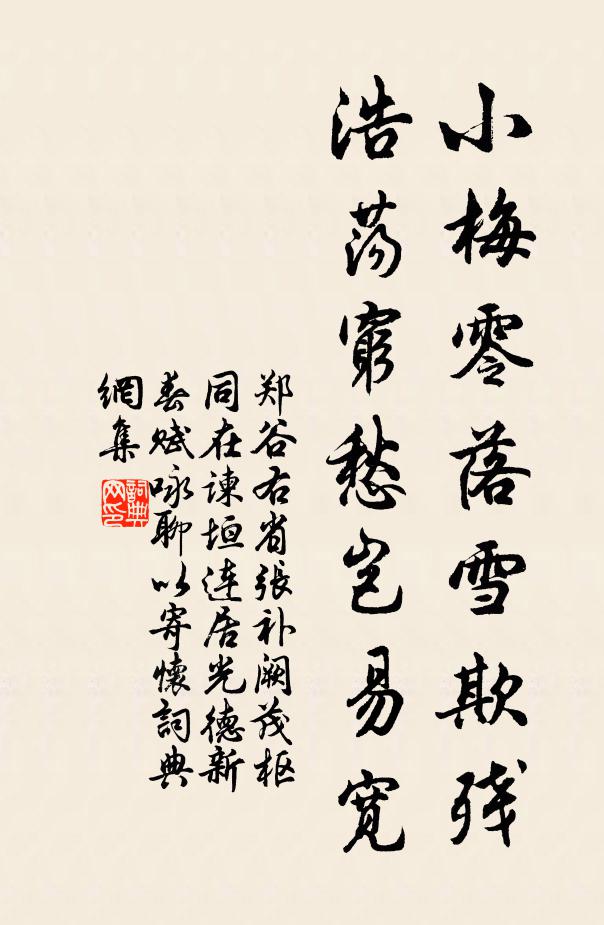 小梅零落雪欺残
浩荡窮愁岂易寛
郑谷右省張补阙茂枢
同在諫垣連居光德新
春赋咏聊以寄懷詞典
網集
詞典
网印